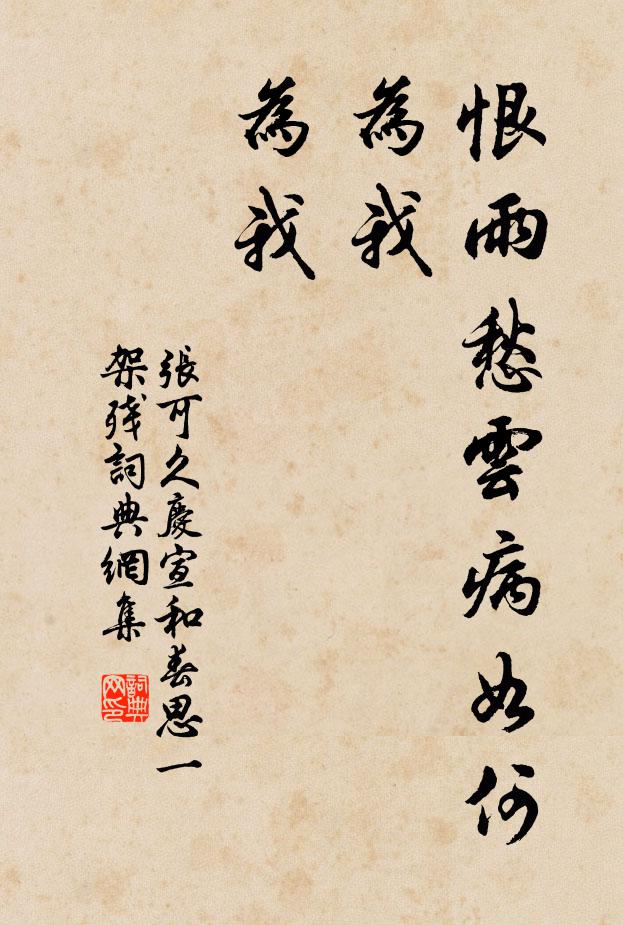 恨雨愁雲病如何
為我
為我
張可久慶宣和春思一
架殘詞典網集
詞典
网印